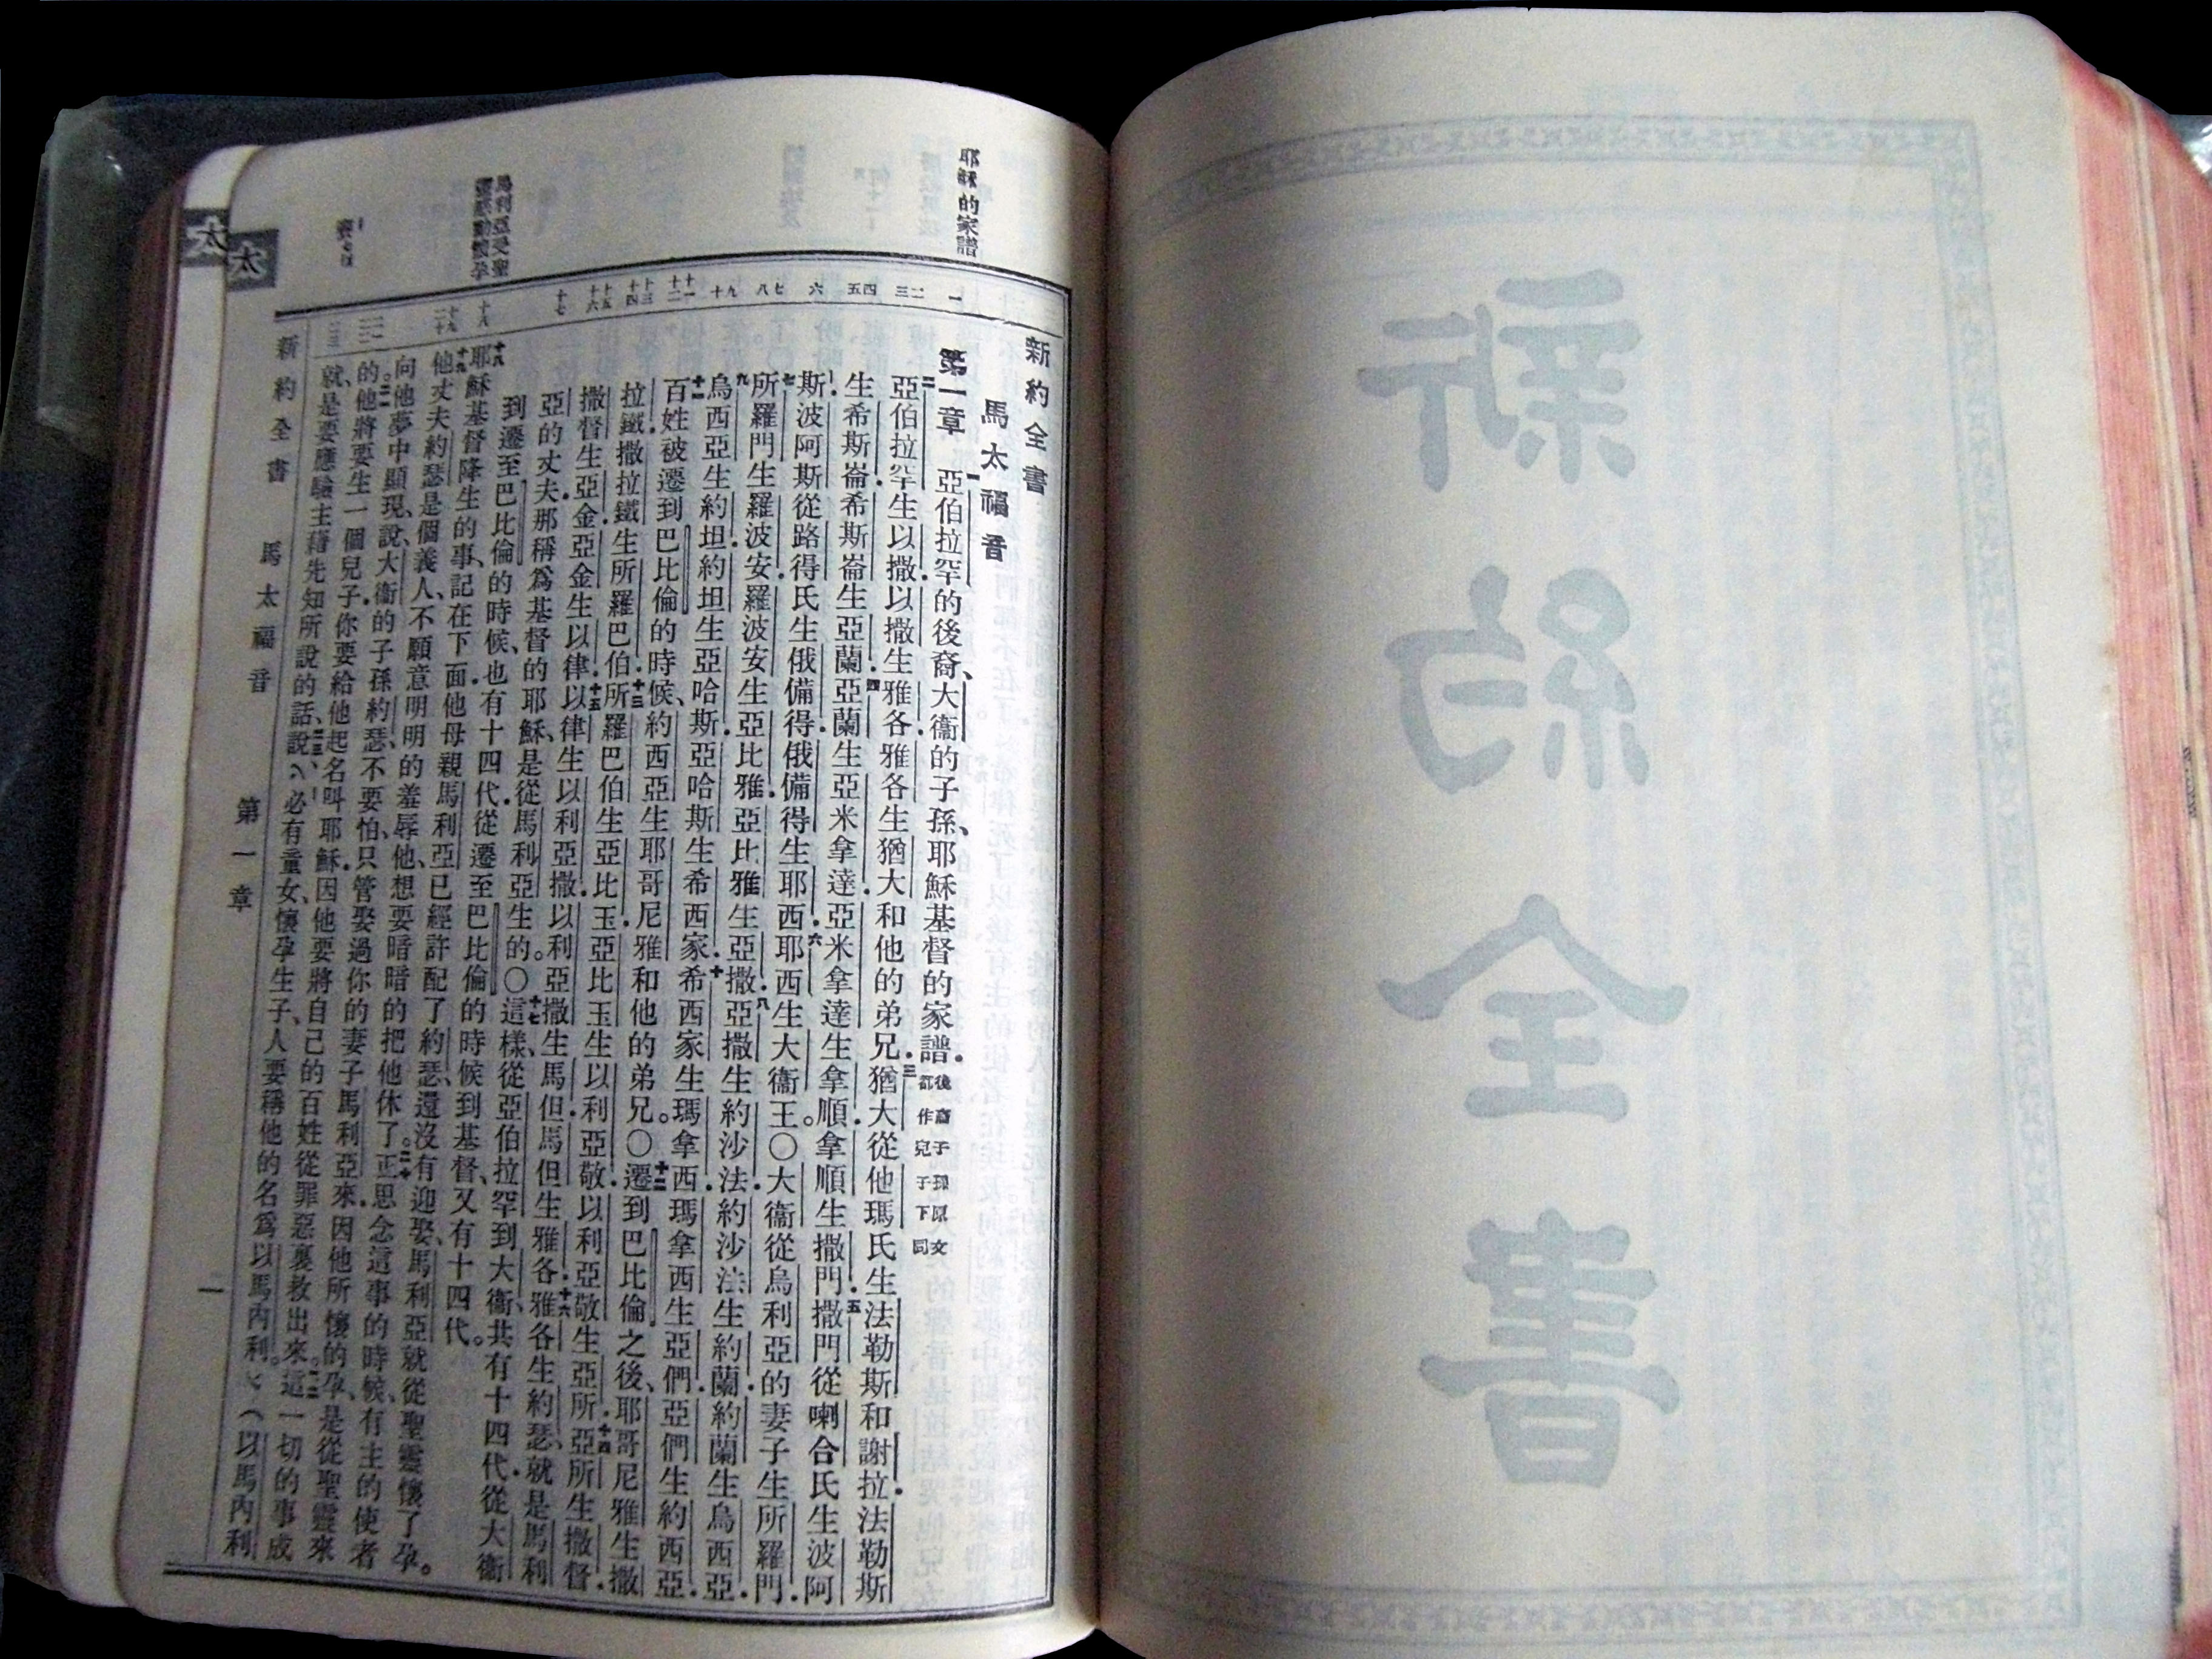 新約全書
耶穌的家譜
馬利亞受聖
靈感動懷孕
一
二
三
四
五
六
七
八
九
十
十一
十二
十三
十四
十五
十六
十七
十八
十九
二十
新約全書
馬太福音
第一章 一亞伯拉罕的後裔、大衞的子孫、耶穌基督的家譜．後裔子孫原文都作兒子下同
二亞伯拉罕生以撒．以撒生雅各．雅各生猶大和他的弟兄．三猶大從他瑪氏生法勒斯和謝拉．法勒斯
生希斯崙．希斯崙生亞蘭．四亞蘭生亞米拿達．亞米拿達生拿順．拿順生撒門．五撒門從喇合氏生波阿
斯．波阿斯從路得氏生俄備得．俄備得生耶西．六耶西生大衞王。〇大衞從烏利亞的妻子生所羅門．
七所羅門生羅波安．羅波安生亞比雅．亞比雅生亞撒．八亞撒生約沙法．約沙法生約蘭．約蘭生烏西亞．
九烏西亞生約坦．約坦生亞哈斯．亞哈斯生希西家．十希西家生瑪拿西．瑪拿西生亞們．亞們生約西亞．
十一百姓被遷到巴比倫的時候、約西亞生耶哥尼雅和他的弟兄。〇十二遷到巴比倫之後、耶哥尼雅生撒
拉鐵．撒拉鐵生所羅巴伯．十三所羅巴伯生亞比玉．亞比玉生以利亞敬．以利亞敬生亞所．十四亞所生撒督．
撒督生亞金．亞金生以律．十五以律生以利亞撒．以利亞撒生馬但．馬但生雅各．十六雅各生約瑟、就是馬利
亞的丈夫．那稱爲基督的耶穌、是從馬利亞生的。〇十七這樣、從亞伯拉罕到大衞、共有十四代．從大衞
到遷至巴比倫的時候、也有十四代．從遷至巴比倫的時候到基督、又有十四代。
十八耶穌基督降生的事、記在下面．他母親馬利亞已經許配了約瑟、還沒有迎娶、馬利亞就從聖靈懷了孕。
十九他丈夫約瑟是個義人、不願意明明的羞辱他、想要暗暗的把他休了。二十正思念這事的時候、有主的使者
向他夢中顯現、說、大衞的子孫約瑟、不要怕、只管娶過你的妻子馬利亞來．因他所懷的孕、是從聖靈來
的。二一他將要生一個兒子．你要給他起名叫耶穌．因他要將自己的百姓從罪惡裏救出來。二二這一切的事成
就、是要應驗主藉先知所說的話、說、二三必有童女、懷孕生子、人要稱他的名爲以馬內利。（以馬內利
新約全書 馬太福音 第一章 一
太
太